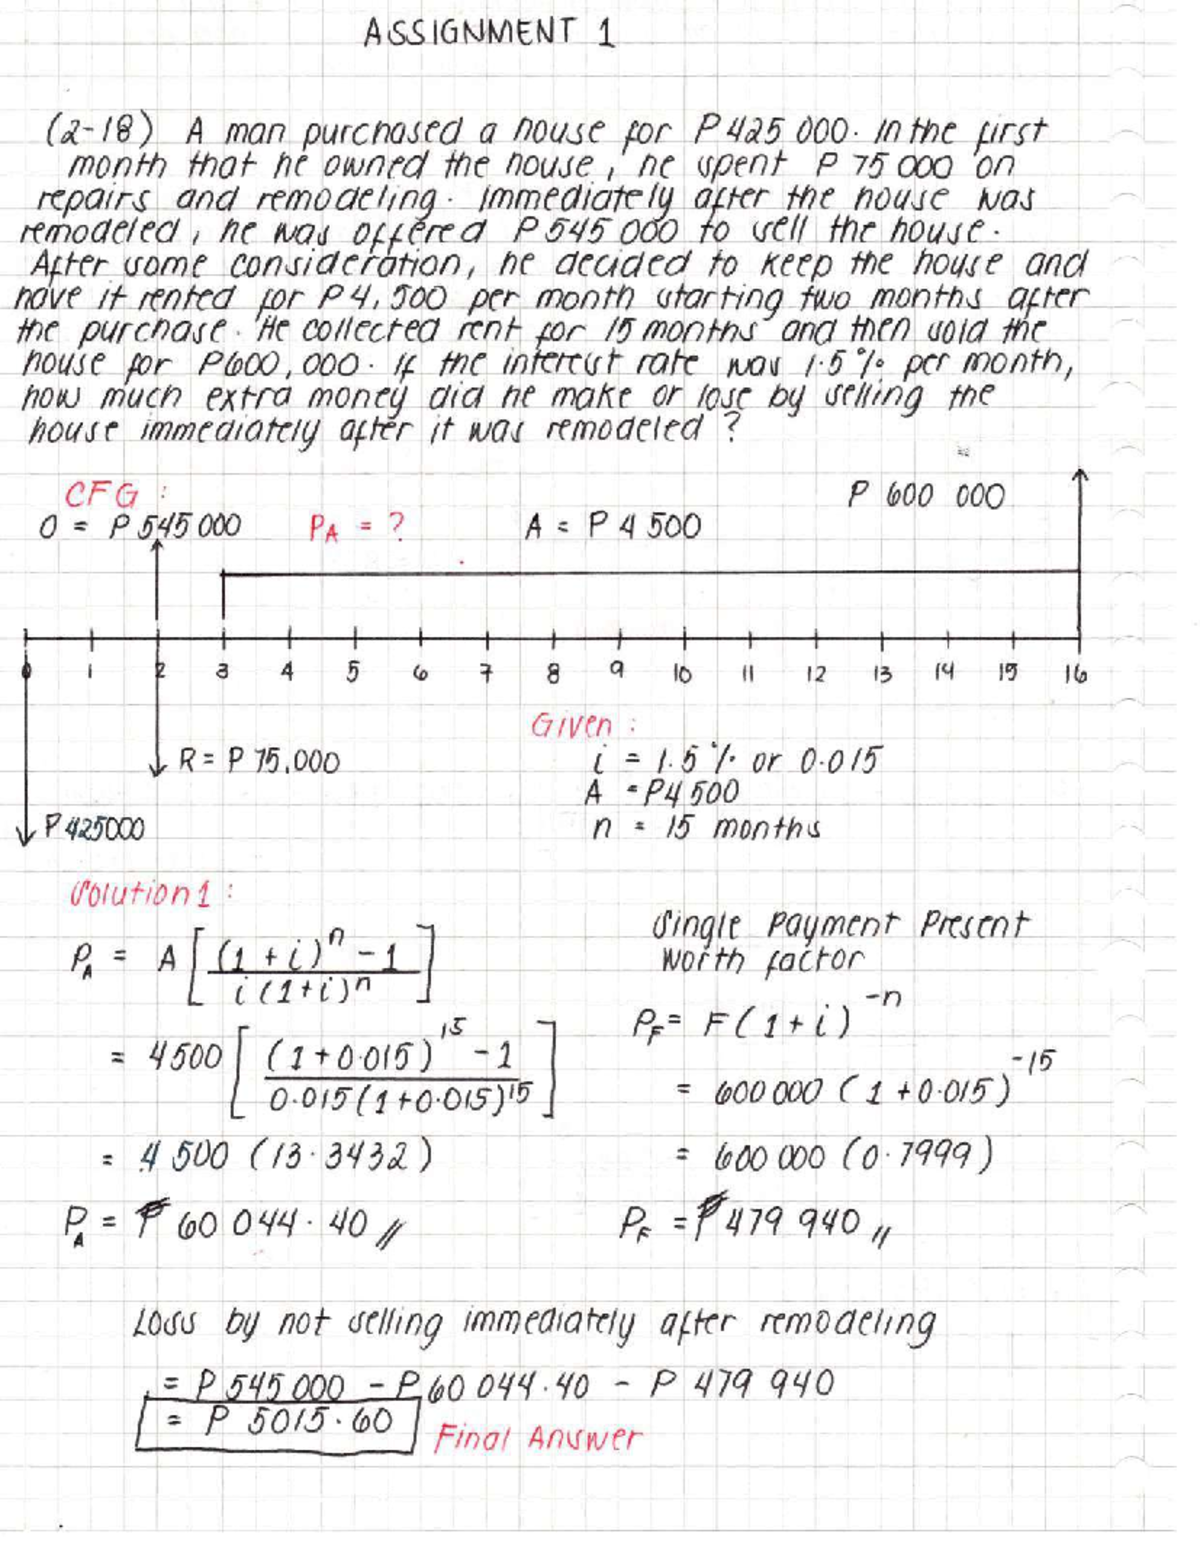 ASSIGNMENT 1
(2-18) A man purchased a house for P425 000. In the first
month that he owned the house, he spent P 75 000 on
repairs and remodeling. Immediately after the house was
remodeled, he was offered P545 000 to sell the house.
After some consideration, he decided to keep the house and
have it rented for P4,500 per month starting two months after
the purchase. He collected rent for 15 months and then sold the
house for P600,000. If the interest rate was 1.5% per month,
how much extra money did he make or lose by selling the
house immediately after it was remodeled?
CFG :
P 600 000
O = P 545 000 PA = ? A = P 4 500
0 1 2 3 4 5 6 7 8 9 10 11 12 13 14 15 16
Given :
R = P 75,000
i = 1.5 % or 0.015
A = P4 500
P 425000
n = 15 months
Solution 1 :
PA = A [ (1 + i)^n - 1 / i (1+i)^n ]
= 4500 [ (1+0.015)^15 - 1 / 0.015 (1+0.015)^15 ]
= 4 500 (13.3432)
PA = ₱ 60 044.40 //
Single Payment Present
Worth factor
PF = F (1 + i)^-n
= 600 000 (1 + 0.015)^-15
= 600 000 (0.7999)
PF = ₱ 479 940 //
Loss by not selling immediately after remodeling
= P 545 000 - P 60 044.40 - P 479 940
= P 5015.60
Final Answer